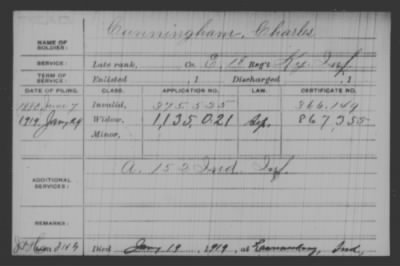 Cunningham, Charles
NAME OF SOLDIER:
SERVICE: Late rank, Co. E, 18 Reg't Ky. Inf.
TERM OF SERVICE: Enlisted , 1 Discharged , 1
DATE OF FILING. CLASS. APPLICATION NO. LAW. CERTIFICATE NO.
1880 June 7 Invalid, 375.535 366.149
1919, Jan, 29 Widow, 1,135,021 867,355
Minor,
ADDITIONAL SERVICES: A. 152 Ind. Inf.
REMARKS:
Died Jany 19, 1919, at Ind.